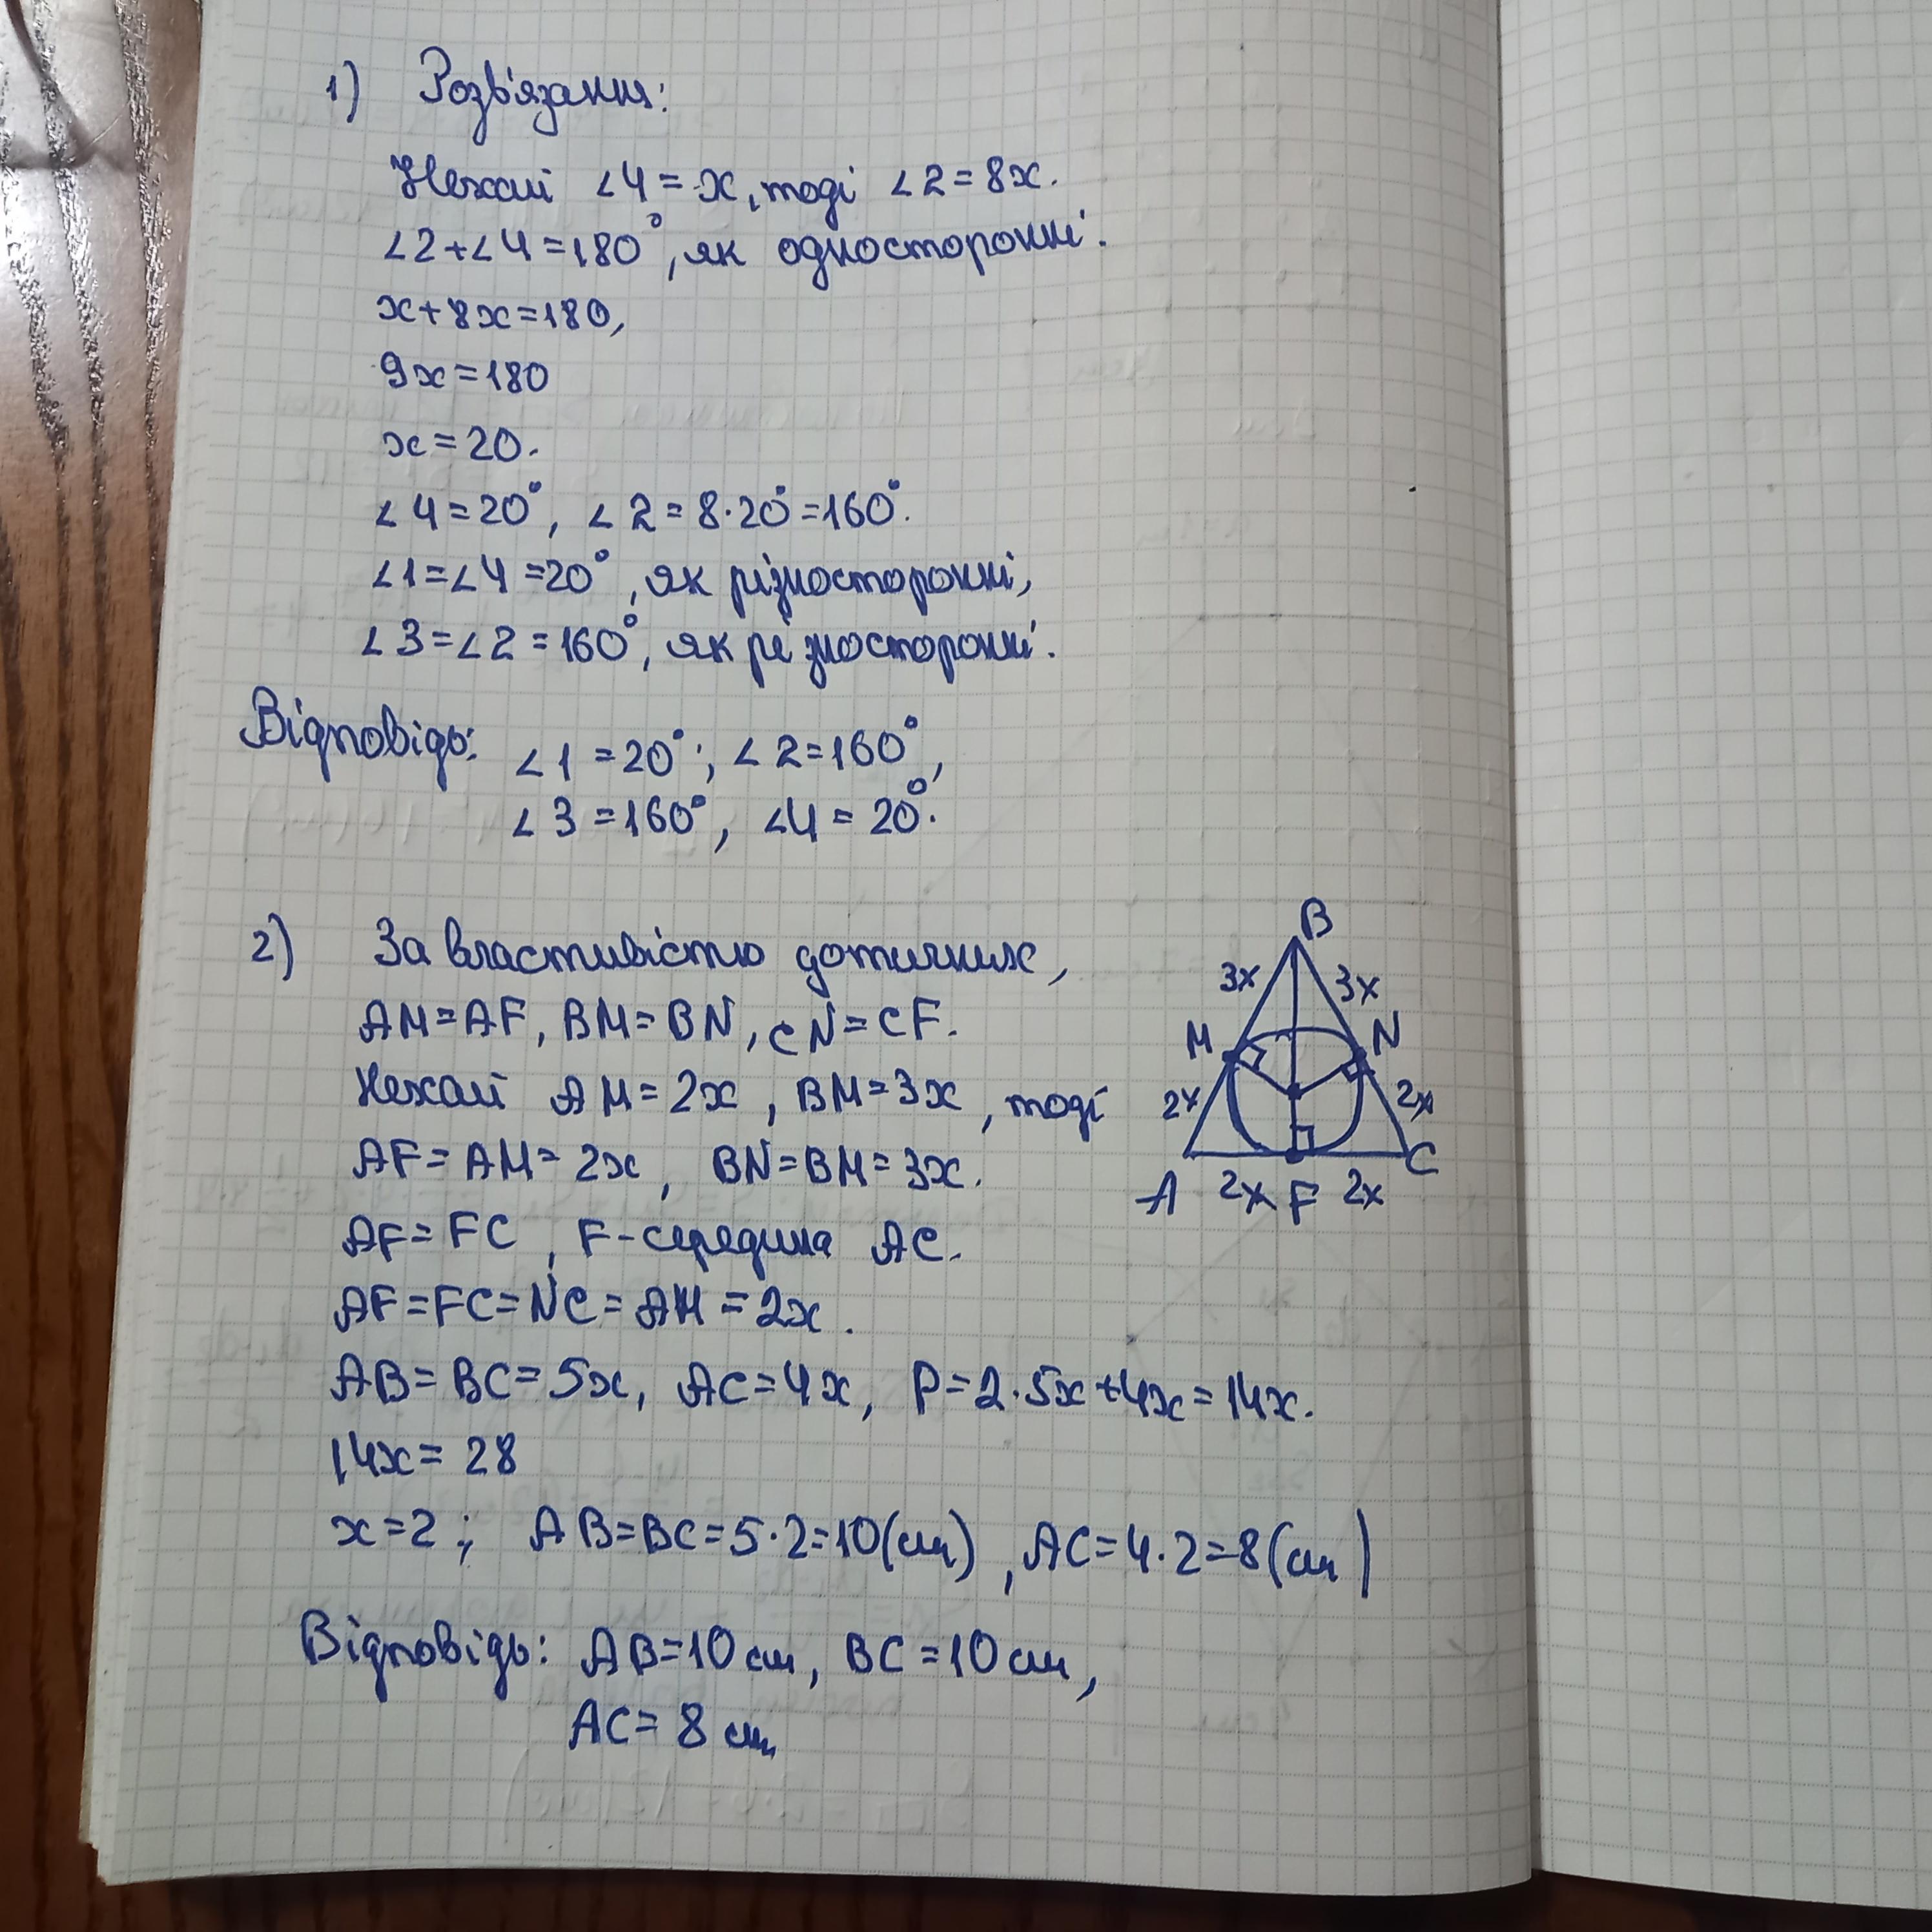 1) Розв'язання:
Нехай ∠4=x, тоді ∠2=8x.
∠2+∠4=180°, як односторонні.
x+8x=180,
9x=180
x=20.
∠4=20°, ∠2=8·20°=160°.
∠1=∠4=20°, як різносторонні,
∠3=∠2=160°, як різносторонні.
Відповідь: ∠1=20°; ∠2=160°,
∠3=160°, ∠4=20°.
2) За властивістю дотичних,
AM=AF, BM=BN, CN=CF.
Нехай AM=2x, BM=3x, тоді
AF=AM=2x, BN=BM=3x.
AF=FC, F-середина AC.
AF=FC=NC=AM=2x.
AB=BC=5x, AC=4x, P=2·5x+4x=14x.
14x=28
x=2; AB=BC=5·2=10(см), AC=4·2=8(см)
Відповідь: AB=10см, BC=10см,
AC=8см
B
3x 3x
M N
2x 2x
A 2x F 2x C